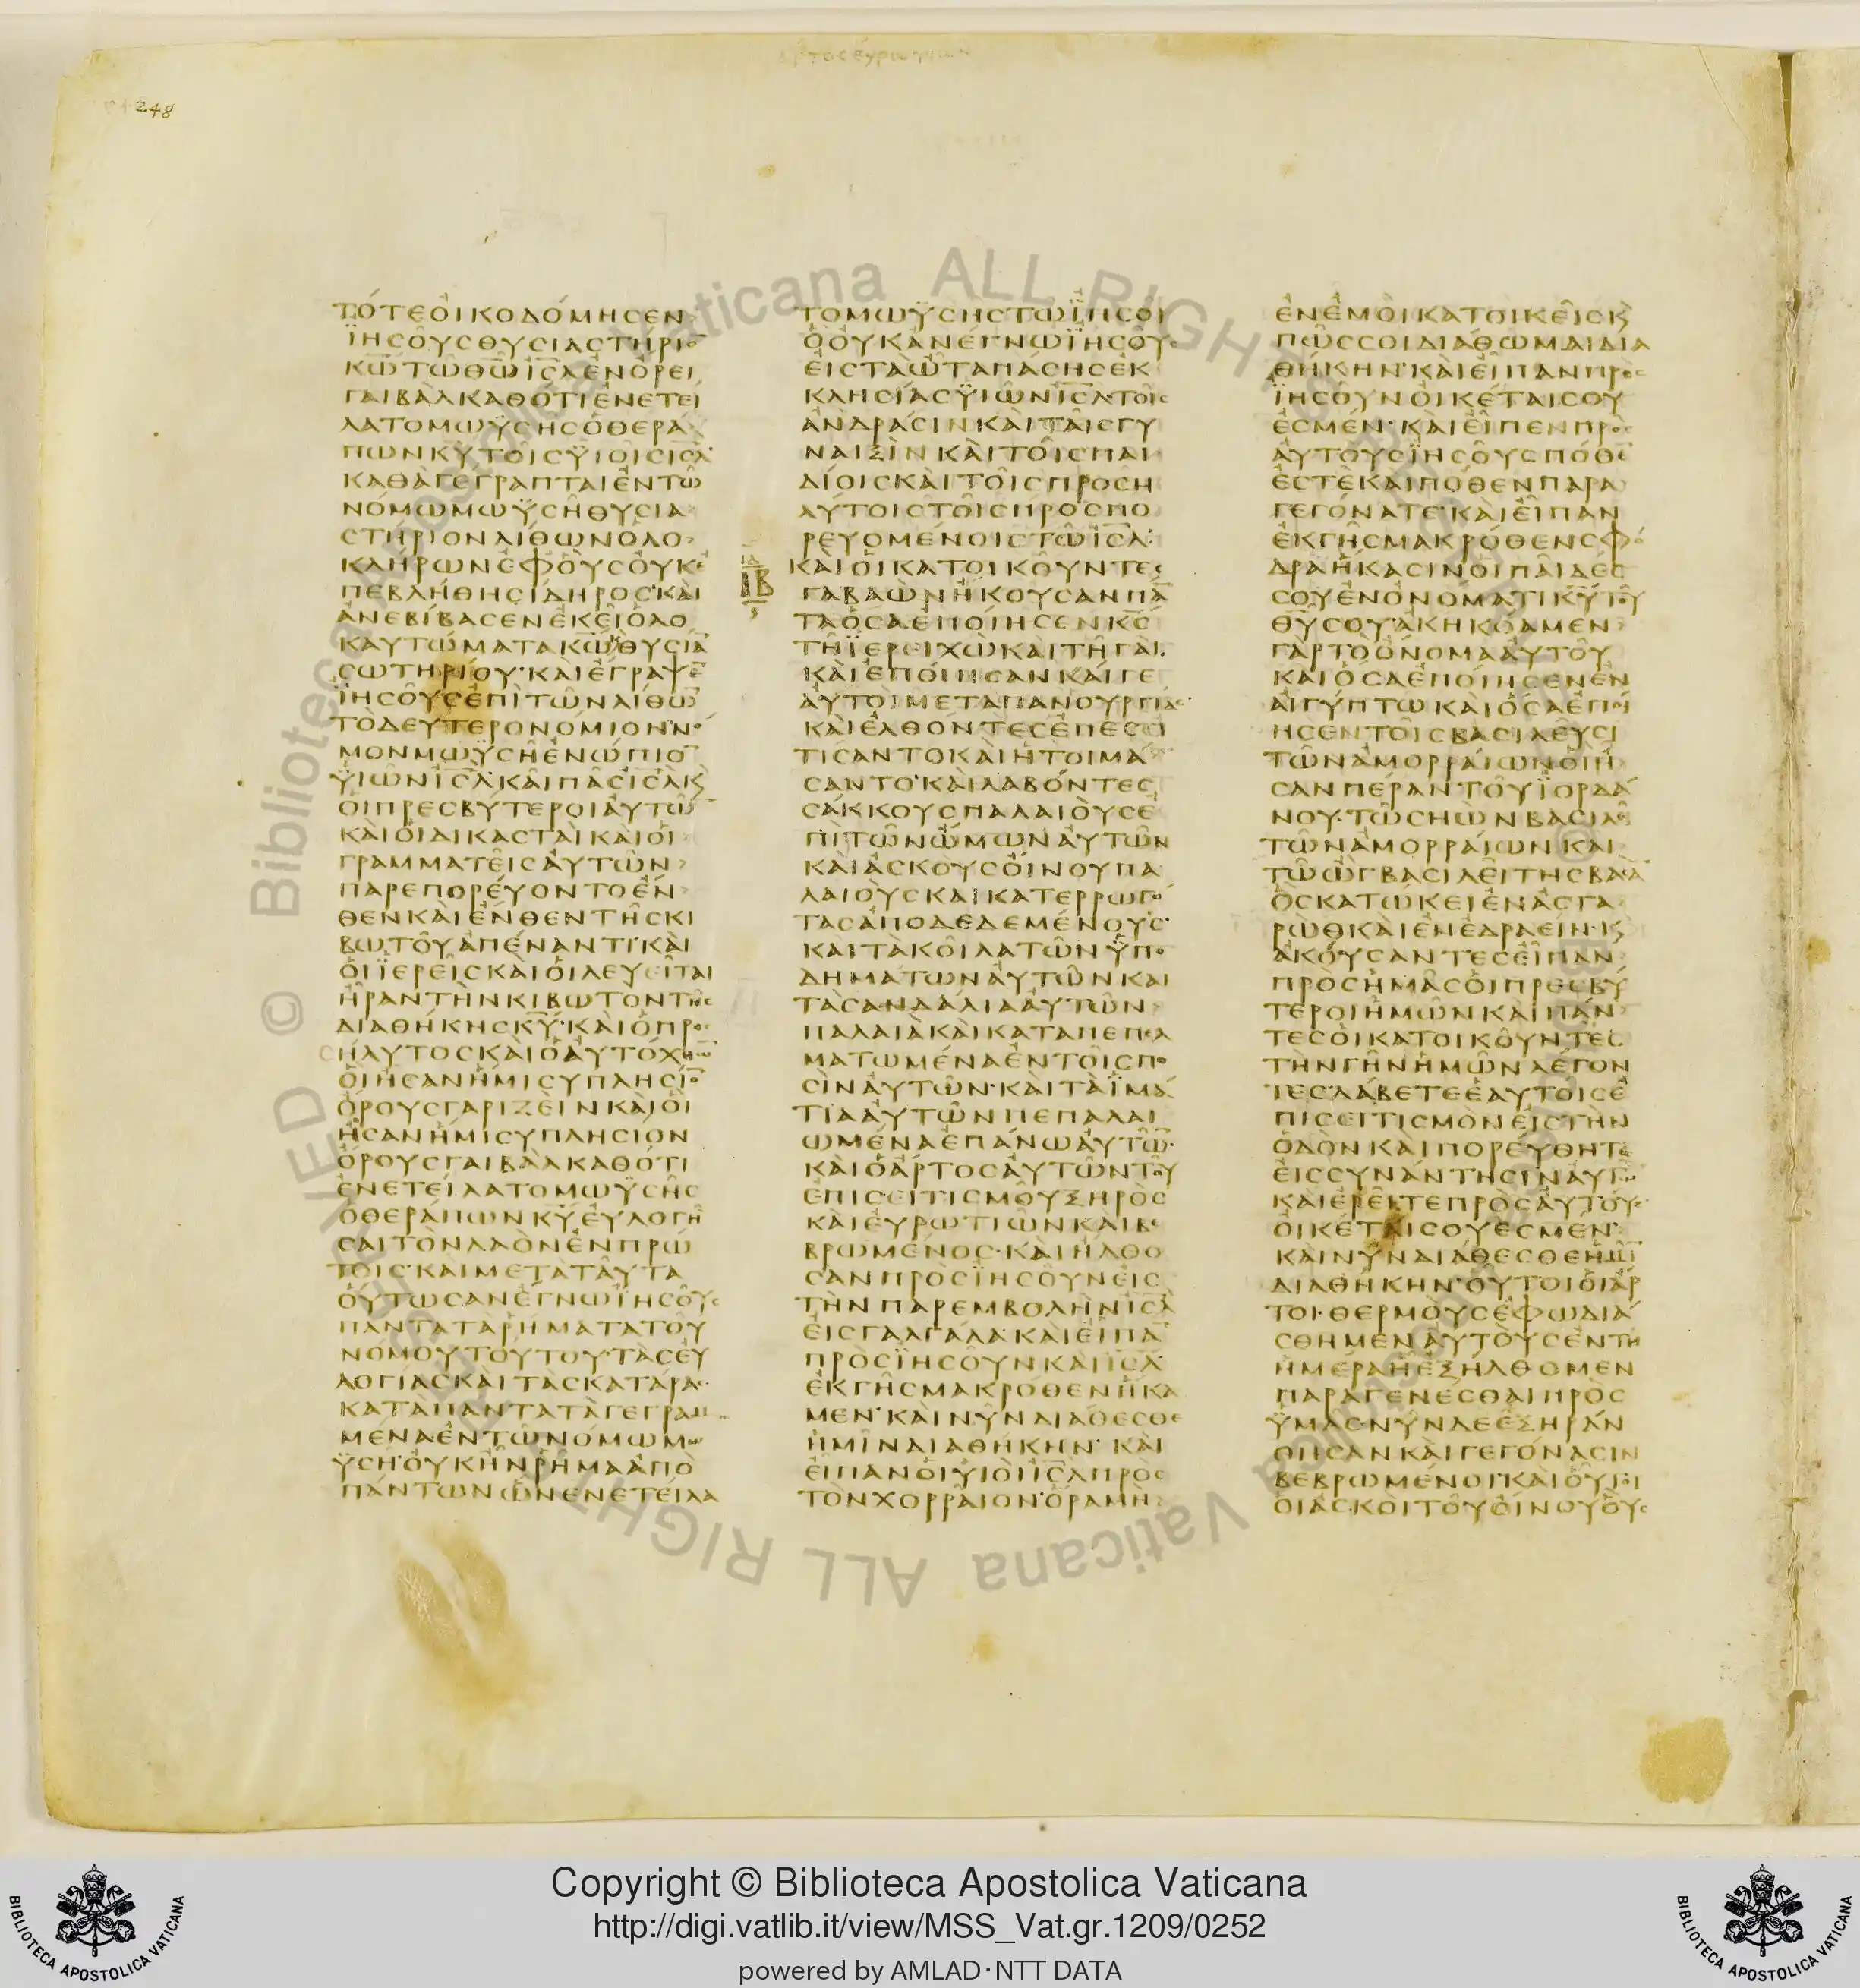 248
ΤΌΤΕΟἸΚΟΔΌΜΗϹΕΝ
ΪΗϹΟΥ͂ϹΘΥϹΙΑϹΤΉΡΙΟ̅
Κ̅Ω̅ΤΩ͂Θ̅Ω̅Ι̅Ϲ̅Λ̅ἘΝΌΡΕΙ
ΓΑΙΒᾺΛΚΑΘΌΤΙἘΝΕΤΕΙ
ΛΑΤΟΜΩΫϹΗϹὉΘΕΡΆ
ΠΩΝΚ̅Υ̅ΤΟΙ͂ϹΫΙΟΙ͂ϹΙ̅Ϲ̅Λ̅
ΚΑΘᾺΓΕΓΡΑΠΤΑΙἘΝΤΩ͂
ΝΌΜΩΜΩΫϹΗ͂ΘΥϹΙΑ
ϹΤΉΡΙΟΝΛΊΘΩΝὉΛΟ
ΚΛΉΡΩΝἘΦΟὟϹΟΥ̓ΚΕ
ΠΕΒΛΉΘΗϹΊΔΗΡΟϹ·ΚΑῚ
ἈΝΕΒΊΒΑϹΕΝἘΚΕΙ͂ὉΛΟ
ΚΑΥΤΏΜΑΤΑΚ̅Ω̅ΚΑΙΘΥϹΙΑ̅
ϹΩΤΗΡΊΟΥ·ΚΑῚἜΓΡΑΨΕ̅
ΪΗϹΟΥ͂ϹἘΠῚΤΩ͂ΝΛΊΘΩ̅
ΤῸΔΕΥΤΕΡΟΝΌΜΙΟΝΝΌ
ΜΟΝΜΩΫϹΗ͂ἘΝΏΠΙΟ̅
ΫΙΩ͂ΝΙ̅Ϲ̅Λ̅·ΚΑῚΠΑ͂ϹΙ̅Ϲ̅Λ̅Κ̀
ΟἹΠΡΕϹΒΎΤΕΡΟΙΑΥ̓ΤΩ͂
ΚΑῚΟἹΔΙΚΑϹΤΑῚΚΑῚΟἹ
ΓΡΑΜΜΑΤΕΙ͂ϹΑΥ̓ΤΩ͂Ν
ΠΑΡΕΠΟΡΕΎΟΝΤΟἜΝ
ΘΕΝΚΑῚἜΝΘΕΝΤΗ͂ϹΚΙ
ΒΩΤΟΥ͂ἈΠΈΝΑΝΤΙ·ΚΑῚ
ΟἹΪΕΡΕΙ͂ϹΚΑῚΟἹΛΕΥΕΙ͂ΤΑΙ
ΗΡΑΝΤῊΝΚΙΒΩΤΟΝΤΗ͂Ϲ
ΔΙΑΘΉΚΗϹΚ̅Υ̅·ΚΑῚὉΠΡΟϹ
ΉΛΥΤΟϹΚΑῚὉΑΥ̓ΤΌΧΘΩ̅
ΟἿΗϹΑΝἩΜΙϹΥΠΛΗϹΊΟ̅
ὌΡΟΥϹΓΑΡΙΖΕῚΝΚΑῚΟἿ
ΗϹΑΝἩΜΙϹΥΠΛΗϹΙΟΝ
ὌΡΟΥϹΓΑΙΒΑΛΚΑΘΌΤΙ
ἘΝΕΤΕΊΛΑΤΟΜΩΫϹΗ͂Ϲ
ὉΘΕΡΆΠΩΝΚ̅Υ̅ΕΥ̓ΛΟΓΗ͂
ϹΑΙΤῸΝΛΑῸΝἘΝΠΡΏ
ΤΟΙϹ·ΚΑΙΜΕΤᾺΤΑΥ͂ΤΑ
ΟὝΤΩϹΑΝΈΓΝΩΪΗϹΟΥ͂Ϲ
ΠΆΝΤΑΤᾺΡΉΜΑΤΑΤΟΥ
ΝΟΜΟΥΤΟΎΤΟΥ·ΤᾺϹΕΥ̓
ΛΟΓΊΑϹΚΑῚΤᾺϹΚΑΤΆΡΑϹ
ΚΑΤᾺΠΆΝΤΑΤᾺΓΕΓΡΑΜ
ΜΈΝΑἘΝΤΩ͂ΝΌΜΩΜΩ
ΫϹΗ·ΟΥ̓ΚΗΝΡΗ͂ΜΑἈΠῸ
ΠΆΝΤΩΝΩΝἘΝΕΤΕΊΛΑ
ΤΟΜΩΫϹΗϹΤΩΪΗϹΟΙ
ὉΟΥ̓ΚἈΝΈΓΝΩΪΗϹΟΥ͂Ϲ
ΕἸϹΤᾺΩΤΑΠΆϹΗϹἘΚ
ΚΛΗϹΊΑϹΫΙΩ͂ΝΙ̅Ϲ̅Λ̅ΤΟΙ͂Ϲ
ἈΝΔΡΆϹΙΝΚΑῚΤΑΙ͂ϹΓΥ
ΝΑΙΞῚΝΚΑῚΤΟΙ͂ϹΠΑΙ
ΔΊΟΙϹΚΑῚΤΟΙ͂ϹΠΡΟϹΗ
ΛΎΤΟΙϹΤΟΙ͂ϹΠΡΟϹΠΟ
ΡΕΥΟΜΈΝΟΙϹΤΩ͂Ι̅Ϲ̅Λ̅:
ΙΒ
ΚΑῚΟἹΚΑΤΟΙΚΟΥ͂ΝΤΕϹ
ΓΑΒΑῺΝἬΚΟΥϹΑΝΠΆ
ΤΑὍϹΑἘΠΟΊΗϹΕΝΚ̅Ϲ̅
ΤΗ͂ΪΕΡΕΙΧῺΚΑῚΤΗ͂ΓΑΊ.
ΚΑῚἘΠΟΊΗϹΑΝΚΑΊΓΕ
ΑΥ̓ΤΟῚΜΕΤᾺΠΑΝΟΥΡΓΊΑϹ
ΚΑῚἘΛΘΌΝΤΕϹἘΠΕϹΕΙ
ΤΙϹΑΝΤΟΚΑῚἩΤΟΙΜΆ
ϹΑΝΤΟ·ΚΑῚΛΑΒΌΝΤΕϹ
ϹΆΚΚΟΥϹΠΑΛΑΙΟῪϹἘ
ΠῚΤΩ͂ΝΩΜΩΝΑΥ̓ΤΩ͂Ν
ΚΑῚἈϹΚΟΥϹΟἼΝΟΥΠΑ
ΛΑΙΟῪϹΚΑΙΚΑΤΕΡΡΩΓΌ
ΤΑϹἈΠΟΔΕΔΕΜΈΝΟΥϹ·
ΚΑΙΤᾺΚΟΙ͂ΛΑΤΩ͂ΝΫΠΟ
ΔΗΜΆΤΩΝΑΥ̓ΤΩ͂ΝΚΑΙ
ΤᾺϹΑΝΔΆΛΙΑΑΥ̓ΤΩ͂Ν
ΠΑΛΑΙᾺΚΑῚΚΑΤΑΠΕΠΕΛ
ΜΑΤΩΜΈΝΑἘΝΤΟΙ͂ϹΠΟ
ϹῚΝΑΥ̓ΤΩ͂Ν·ΚΑΙΤᾺΪΜΆ
ΤΙΑΑΥ̓ΤΩ͂ΝΠΕΠΑΛΑΙ
ΩΜΈΝΑἘΠΆΝΩΑΥ̓ΤΩ̅·
ΚΑῚὉἌΡΤΟϹΑΥ̓ΤΩ͂ΝΤΟΥ
ἘΠΙϹΕΙΤΙϹΜΟΥ͂ΞΗΡῸϹ
ΚΑῚΕΥ̓ΡΩΤΙΩ͂ΝΚΑΙΒΕ
ΒΡΩΜΈΝΟϹ·ΚΑῚΉΛΘΟ
ϹΑΝΠΡῸϹΪΗϹΟΥ͂ΝΕἸϹ
ΤῊΝΠΑΡΕΜΒΟΛῊΝΙ̅Ϲ̅Λ̅
ΕἸϹΓΆΛΓΑΛΑ·ΚΑῚΕἾΠΑ̅
ΠΡῸϹΪΗϹΟΥ͂ΝΚΑῚΙ̅Ϲ̅Λ̅
ἘΚΓΗ͂ϹΜΑΚΡΌΘΕΝΉΚΑ
ΜΕΝ·ΚΑῚΝΥ͂ΝΔΙΆΘΕϹΘΕ
ἩΜΙ͂ΝΔΙΑΘΉΚΗΝ·ΚΑῚ
ΕἸΠΑΝΟἹΫΙΟῚΙ̅Ϲ̅Λ̅ΠΡῸϹ
ΤῸΝΧΟΡΡΑΙ͂ΟΝ·ὍΡΑΜῊ
ἘΝἘΜΟῚΚΑΤΟΙΚΕΙ͂ϹΚ̀
ΠΩ͂ϹϹΟΙΔΙΆΘΩΜΑΙΔΙΑ
ΘΉΚΗΝ·ΚΑῚΕἾΠΑΝΠΡῸϹ
ΪΗϹΟΥ͂ΝΟἸΚΈΤΑΙϹΟΥ
ἘϹΜΈΝ·ΚΑῚΕἾΠΕΝΠΡῸϹ
ΑΥ̓ΤΟῪϹΪΗϹΟΥ͂ϹΠΌΘΕ̅
ἘϹΤῈΚΑῚΠΌΘΕΝΠΑΡΑ
ΓΕΓΌΝΑΤΕ·ΚΑῚΕἾΠΑΝ
ἘΚΓΗ͂ϹΜΑΚΡΌΘΕΝϹΦΌ
ΔΡΑἭΚΑϹΙΝΟἹΠΑΙ͂ΔΕϹ
ϹΟΥἘΝΟΝΌΜΑΤΙΚ̅Υ̅ΤΟΥ͂
Θ̅Υ̅ϹΟΥ·ἈΚΗΚΌΑΜΕΝ
ΓᾺΡΤῸὌΝΟΜΑΑΥ̓ΤΟΥ͂
ΚΑῚὍϹΑἘΠΟΊΗϹΕΝἘΝ
ΑἸΓΎΠΤΩΚΑῚὍϹΑἘΠΟΊ
ΗϹΕΝΤΟΙ͂ϹΒΑϹΙΛΕΥ͂ϹΙ
ΤΩ͂ΝἈΜΟΡΡΑΊΩΝΟἿΗ
ϹΑΝΠΈΡΑΝΤΟΥ͂ΪΟΡΔΆ
ΝΟΥ·ΤΩ͂ϹΗῺΝΒΑϹΙΛΕΙ͂
ΤΩ͂ΝἈΜΟΡΡΑΊΩΝΚΑΙ
ΤΩ͂ὨΓΒΑϹΙΛΕΙ͂ΤΗϹΒΑϹΆ̅
ὋϹΚΑΤΏΚΕΙἘΝἈϹΤΑ
ΡῺΘΚΑῚἘΝἘΔΡΑΕΊΝ·Κ̀
ἈΚΟΎϹΑΝΤΕϹΕἾΠΑΝ
ΠΡῸϹἩΜΑ͂ϹΟἹΠΡΕϹΒΎ
ΤΕΡΟΙἩΜΩ͂ΝΚΑῚΠΆΝ
ΤΕϹΟἹΚΑΤΟΙΚΟΥ͂ΝΤΕϹ
ΤῊΝΓΗ͂ΝἩΜΩ͂ΝΛΈΓΟΝ
ΤΕϹ·ΛΆΒΕΤΕἙΑΥΤΟΙ͂ϹἘ
ΠΙϹΕΙΤΙϹΜῸΝΕἸϹΤῊΝ
ὉΔῸΝΚΑῚΠΟΡΕΎΘΗΤΕ
ΕἸϹϹΥΝΆΝΤΗϹΙΝΑΥ̓ΤΩ͂
ΚΑῚἘΡΕΙ͂ΤΕΠΡῸϹΑΥ̓ΤΟΎϹ·
ΟἸΚΈΤΑΙϹΟΥἘϹΜΈΝ·
ΚΑῚΝΥ͂ΝΔΙΆΘΕϹΘΕἩΜΙ̅
ΔΙΑΘΉΚΗΝ·ΟὟΤΟΙΟἹἌΡ
ΤΟΙ·ΘΕΡΜΟῪϹἘΦΩΔΙΆ
ϹΘΗΜΕΝΑΥ̓ΤΟῪϹἘΝΤΗ͂
ἩΜΈΡΑΗἘΞΉΛΘΟΜΕΝ
ΠΑΡΑΓΕΝΈϹΘΑΙΠΡῸϹ
ΫΜΑ͂Ϲ·ΝΥ͂ΝΔΕἘΞΗΡΆΝ
ΘΗϹΑΝΚΑῚΓΕΓΌΝΑϹΙΝ
ΒΕΒΡΩΜΈΝΟΙ·ΚΑῚΟὟΤΟΙ
ΟἹἈϹΚΟῚΤΟΥ͂ΟἼΝΟΥΟὝϹ
Copyright © Biblioteca Apostolica Vaticana
http://digi.vatlib.it/view/MSS_Vat.gr.1209/0252
powered by AMLAD·NTT DATA
BIBLIOTECA APOSTOLICA VATICANA
BIBLIOTECA APOSTOLICA VATICANA